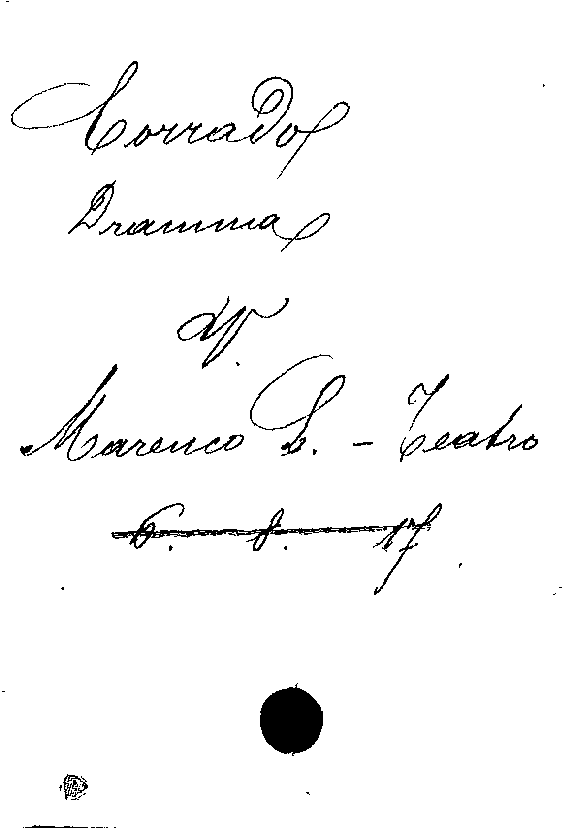 Corrado
Dramma
V.
Marenco L. - Teatro
6. 8. 17